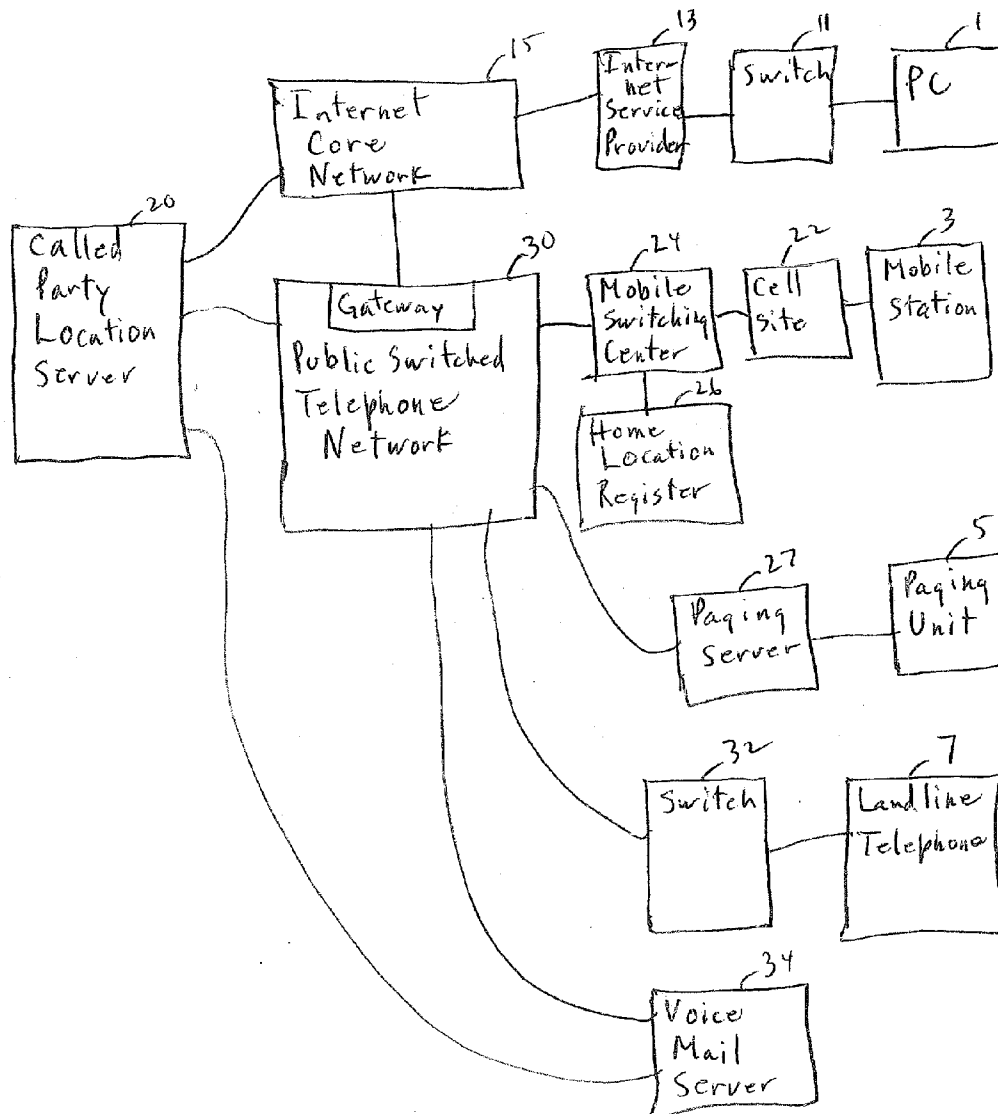 15
13
11
1
Internet
Core
Network
Inter-
net
Service
Provider
Switch
PC
20
Called
Party
Location
Server
30
Gateway
Public Switched
Telephone
Network
24
Mobile
Switching
Center
22
Cell
Site
3
Mobile
Station
26
Home
Location
Register
27
Paging
Server
5
Paging
Unit
32
Switch
7
Landline
Telephone
34
Voice
Mail
Server